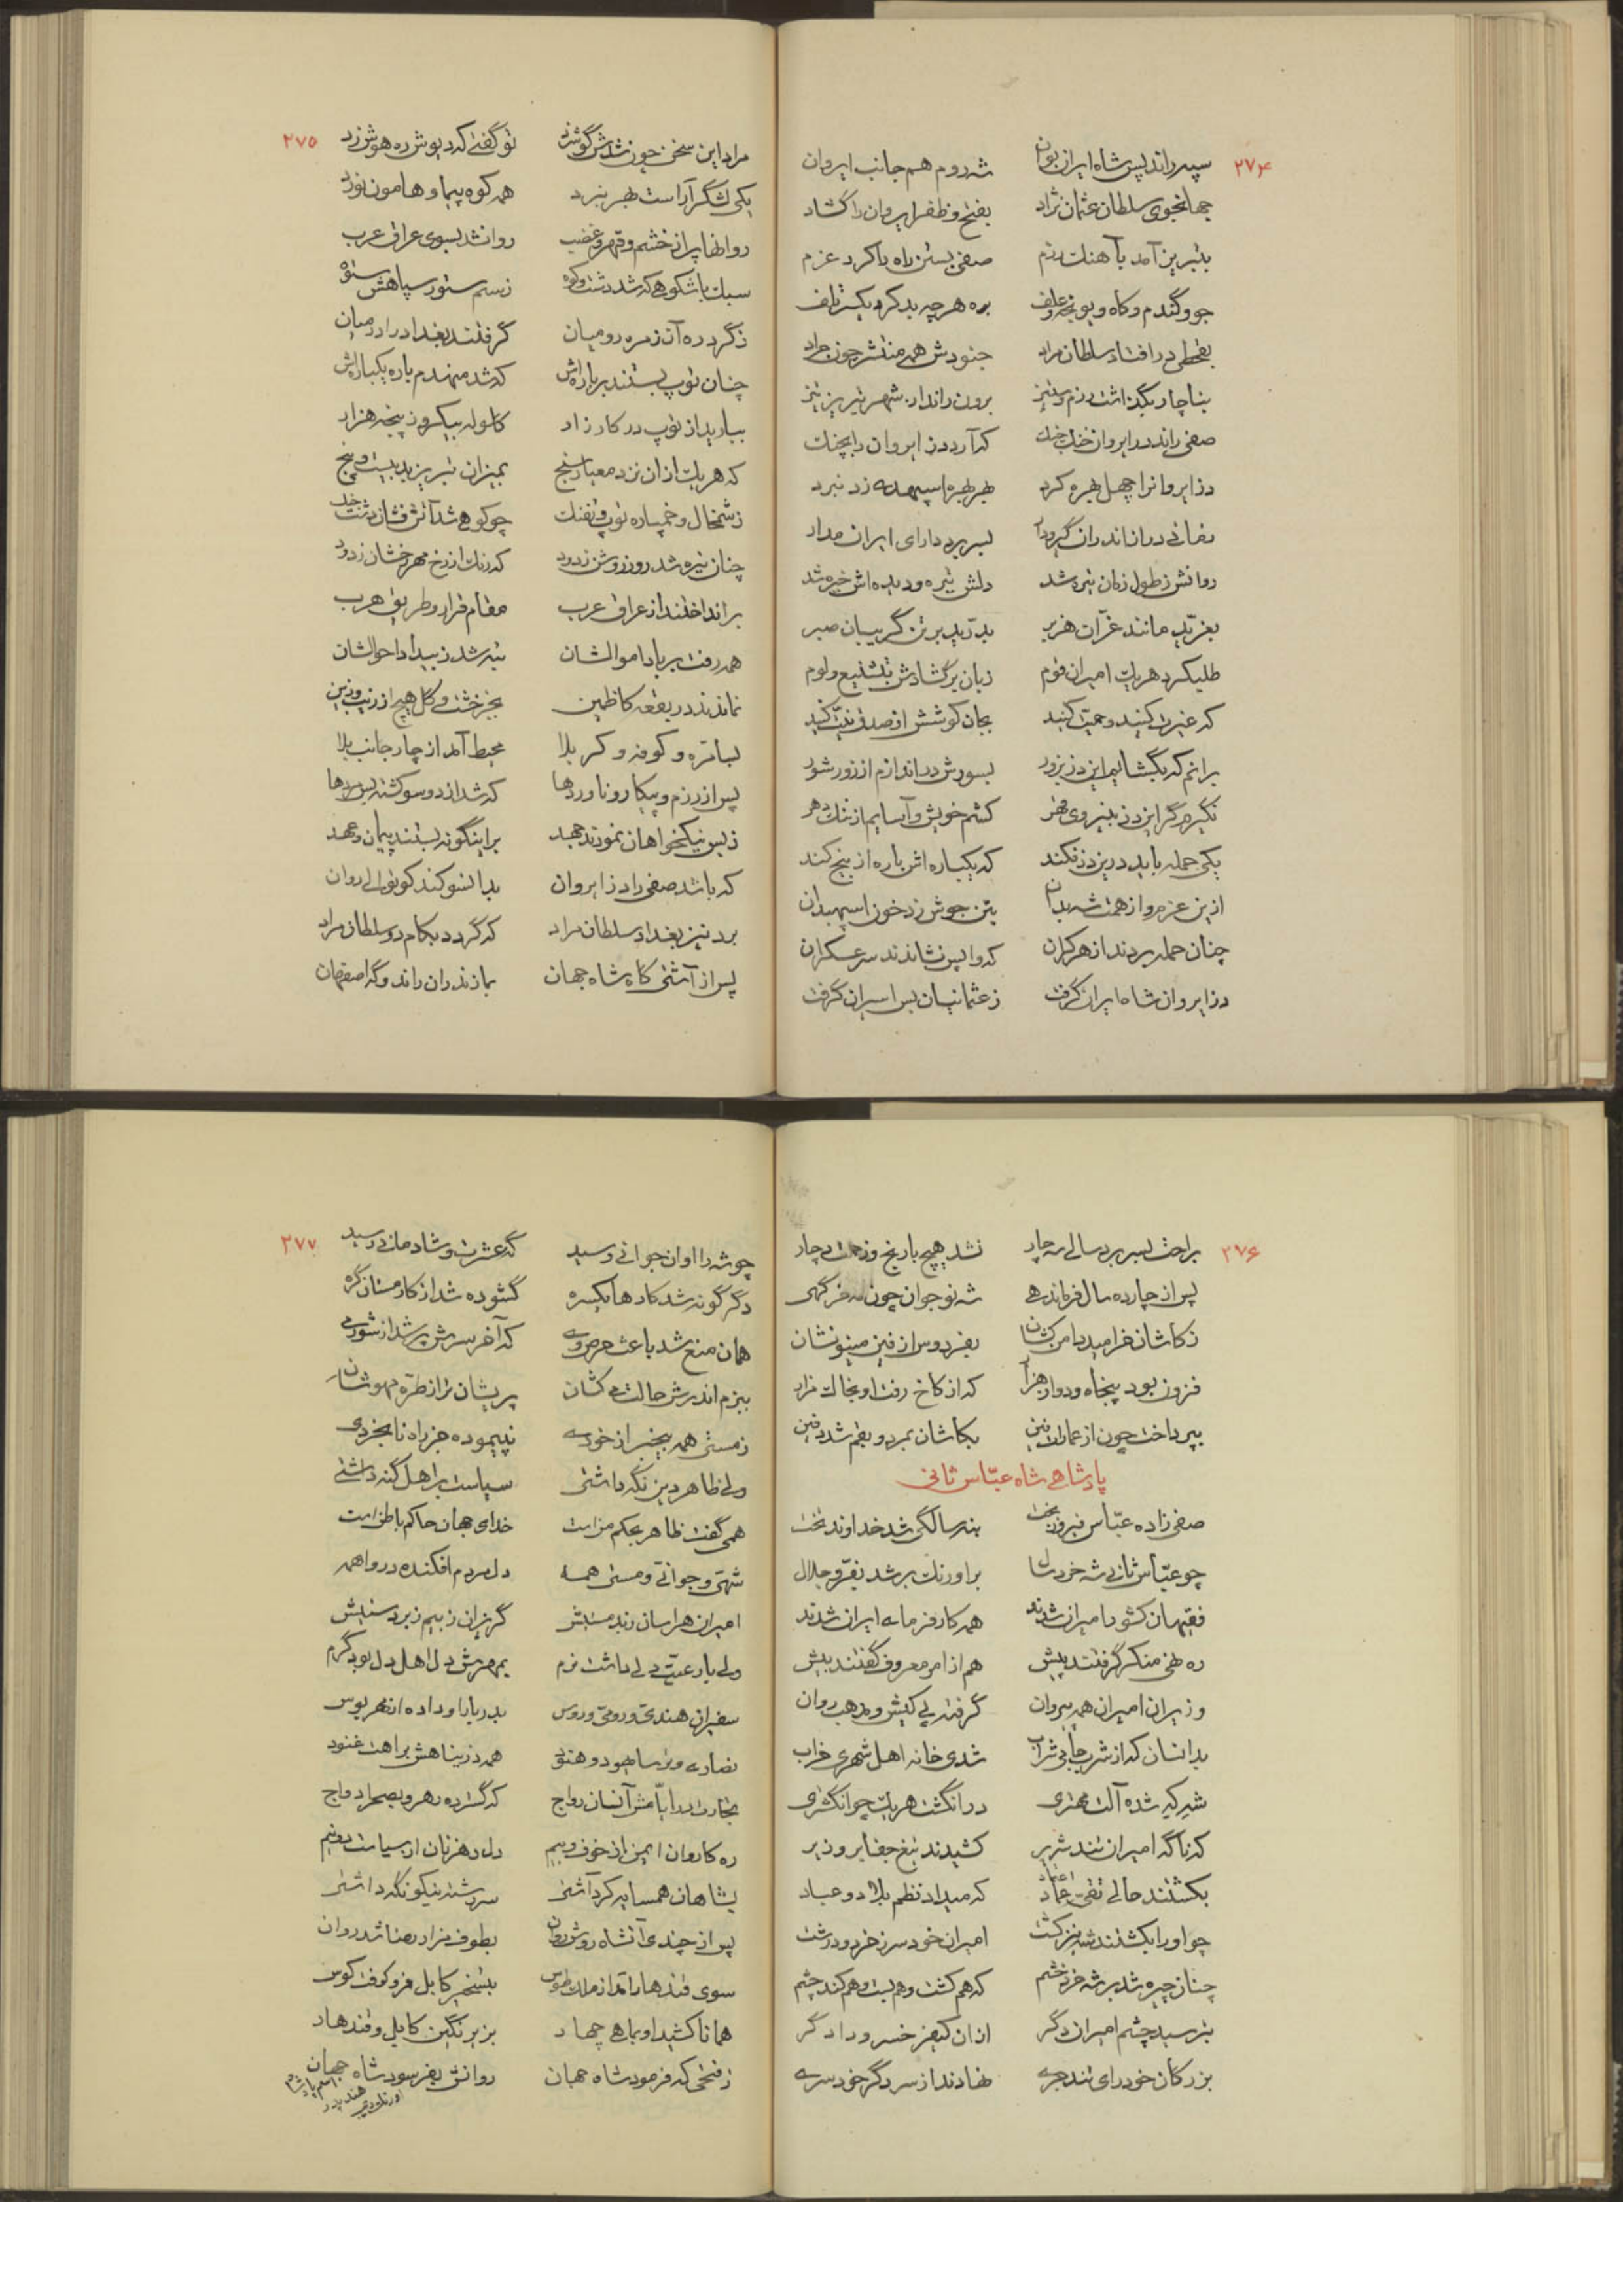 ۲۷۴
سپه راند پس شاه ایران بوان شه روم هم جانب ایروان
جهانجوی سلطان عثمان نژاد بفتح و ظفر ایروان را گشاد
بتبریز آمد بآهنگ رزم صفی بستن راه را کرد عزم
جو و گندم و کاه و یونجه علف بره هر چه بد کرد یکسر تلف
بقحطی در افتاد سلطان مراد جنودش همه منتشر چون جراد
بناچار بگذاشت رزم و ستیز برون راند از شهر تبریز نیز
صفی راند در ایروان خنگ جنگ که آرد دز ایروان را بچنگ
دز ایروانرا چهل بهره کرد بهر بهره اسپهبدی زد نبرد
زمانی دران اندران گیرودار بسر برد دارای ایران مدار
روانش ز طول زمان تیره شد دلش تیره و دیده اش خیره شد
بغرید مانند غران هزبر بدرید بر تن گریبان صبر
طلبکرد هر یک امیران قوم زبان برگشادش بتشنیع و لوم
که غیرت کنید و حمیت کنید بجان کوشش از صدق نیت کنید
برانم که بگشایم این دز بزور بسورش در اندازم از زور شور
نگیرم گر این دز بنیروی قهر کشم خویش و آسایم از ننگ دهر
یکی حمله باید درین دز فکند که یکباره اش باره از بیخ کند
ازین عزم و از همت شه بدان بتن جوش زد خون اسپهبدان
چنان حمله بردند از هر کران که واپس نشاندند سر عسکران
دز ایروان شاه ایران گرفت ز عثمانیان بس اسیران گرفت
۲۷۵
مراد این سخن چون شدش گوشزد تو گفتی که دیوش ره هوش زد
یکی لشگر آراست بهر نبرد همه کوه پیما و هامون نورد
روانها پر از خشم و قهر و غضب روانشد بسوی عراق عرب
سبک باشکوهی که شد دشت و کوه ز سم ستور سپاهش ستوه
ز گرد ره آن زمره رومیان گرفتند بغداد را در میان
چنان توپ بستند بر باره اش که شد منهدم باره یکباره اش
ببارید از توپ در کارزار گلوله بیکروز پنجه هزار
که هر یک ازان نزد معیار سنج بمیزان تبریز بد بیست و پنج
ز شمخال و خمپاره توپ و تفنگ چو کوهی شد آتش فشان دشت جنگ
چنان تیره شد روز روشن ز دود که رنگ از رخ مهر رخشان زدود
برانداختند از عراق عرب مقام قرار و طریق هرب
همه رفت بر باد اموالشان تبه شد ز بیداد احوالشان
نماندند در بقعه کاظمین بجز خشت و گل هیچ از زیب و زین
بسامره و کوفه و کربلا محیط آمد از چار جانب بلا
پس از رزم و پیکار و ناوردها که شد از دو سو کشته بس مردها
ز بس نیکخواهان نمودند جهد بر اینگونه بستند پیمان و عهد
که باشد صفی را دز ایروان بدانسو کند کوتوالی روان
برد نیز بغداد سلطان مراد که گردد بکام دو سلطان مراد
پس از آشتی گاه شاه جهان بمازندران راند و گه اصفهان
۲۷۶
براحت بسر برد سالی سه چار نشد هیچ با رنج و زحمت دچار
پس از چارده سال فرماندهی شه نوجوان چون فر گهی
ز کاشان خرامید دامن کشان بفردوس از فین مینو نشان
فزون بود پنجاه و دو از هزار که از کاخ رفت او بخاک مزار
بپرداخت چون از عمارات فین بکاشان بمرد و بقم شد دفین
پادشاهی شاه عباس ثانی
صفی زاده عباس فیروز بخت بنه سالگی شد خداوند تخت
چو عباس ثانی شه خردسال بر اورنگ بر شد بفر و جلال
فقیهان کشور امیران شدند همه کارفرمای ایران شدند
ره نهی منکر گرفتند پیش هم از امر معروف گفتند بیش
وزیران امیران همه پیروان گرفته پی کیش و مذهب روان
بدانسان که از شرب جامی شراب شدی خانه اهل شهری خراب
شهر که شده آلت مهتری در انگشت هر یک چو انگشتری
که ناگه امیران تند شریر کشیدند تیغ جفا بر وزیر
بکشتند حالی تقی اعتماد که میداد نظم بلاد و عباد
چو او را بکشتند شه نیز کشت امیران خودسر ز خرد و درشت
چنان چیره شد بر شه خرد خشم که هم کشت و هم بست و هم کند چشم
بترسید چشم امیران دگر ازان کیفر خسرو دادگر
بزرگان خودرای تند جری نهادند از سر دگر خودسری
۲۷۷
چو شه را اوان جوانی رسید گه عشرت و شادمانی رسید
دگرگونه شد کارها یکسره گشوده شد از کار مستان گره
همان منع شد باعث حرص وی که آخر سرش پر شد از شور می
ببزم اندرش حالت می کشان پریشان تر از طره مهوشان
ز مستی همه بیخبر از خودی نپیموده جز راه نابخردی
ولی ظاهر دین نگه داشتی سیاست بر اهل گنه داشتی
همی گفت ظاهر بحکم منست خدای جهان حاکم باطنست
شهی و جوانی و مستی همه دل مردم افکنده در واهمه
امیران هراسان ز بد مستیش گریزان ز بیم زبردستیش
ولی با رعیت دلی داشت نرم بمهرش دل اهل دل بود گرم
سفیران هندی و رومی و روس بدربار او داده از مهر بوس
نصاری و ترسا یهود و هنود همه در پناهش براحت غنود
تجارت در ایامش آنسان رواج که گسترده رهرو بصحرا دواج
ره کاروان ایمن از خوف و بیم دل رهزنان از سیاست دو نیم
بشاهان همسایه کرد آشتی سر رشته نیکو نگه داشتی
پس از چندی آنشاه روشن روان بطوف مزار رضا شد روان
سوی قندهار آمد از ملک طوس بتسخیر کابل فرو کوفت کوس
همانا کشید او بماهی چهار بزیر نگین کابل و قندهار
ز فتحی که فرمود شاه جهان روانش بفرسود شاه جهان
اسم پادشاه
هند پدر
اورنگ زیب